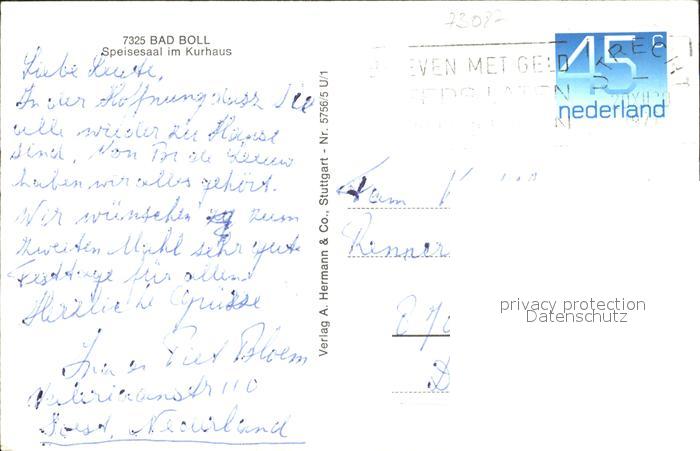 7325 BAD BOLL
Speisesaal im Kurhaus
Liebe Leute,
In der Hoffnung dasz Sie
alle wieder zu Hause
sind. Von Br de Leeuw
haben wir alles gehört.
Wir wünschen zum
zweiten Mahl sehr gute
Festtage für allen
Herzliche Grüsse
Piet Bloem
110
Soest, Nederland
Verlag A. Hermann & Co., Stuttgart - Nr. 57565 U/1
73087
EVEN MET GELD
UTRECHT
45 c
nederland
Fam
Renner
privacy protection
Datenschutz